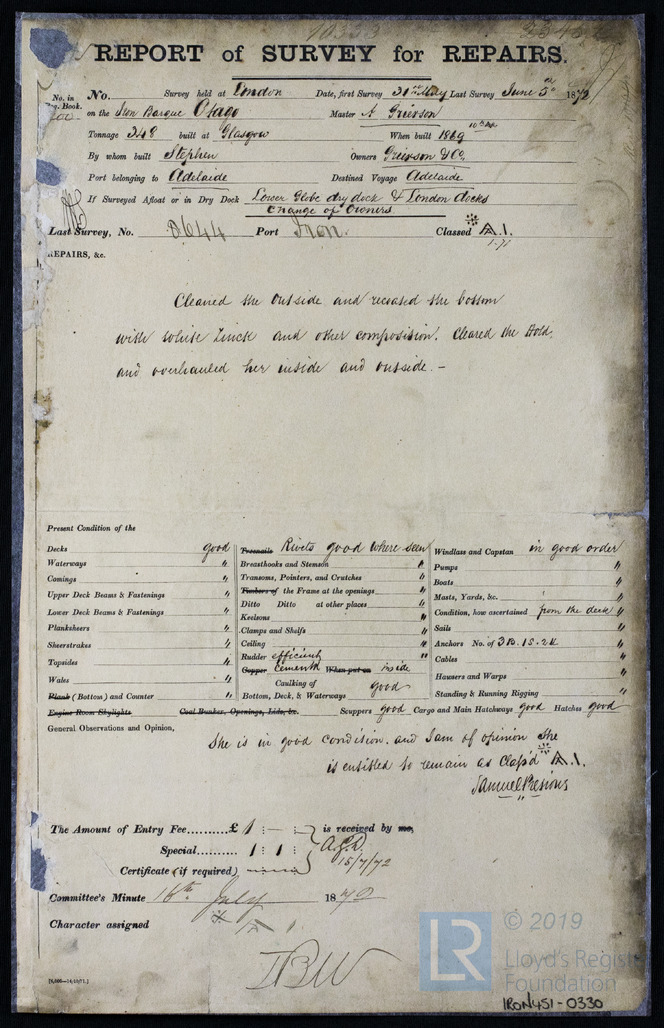 10333
REPORT of SURVEY for REPAIRS.
No. in Reg. Book. No. Survey held at London Date, first Survey 31st May Last Survey June 5th 1872
on the Iron Barque Otago Master A Grierson
Tonnage 348 built at Glasgow When built 1869 10th mo
By whom built Stephen Owners Grierson & Co.
Port belonging to Adelaide Destined Voyage Adelaide
If Surveyed Afloat or in Dry Dock Lower Globe dry dock & London docks
Change of Owners.
Last Survey, No. 8644 Port Iron. Classed A.1.
1-71
REPAIRS, &c.
Cleaned the outside and recoated the bottom
with white Zinck and other composition. Cleared the Hold,
and overhauled her inside and outside.-
Present Condition of the
Decks good
Waterways "
Comings "
Upper Deck Beams & Fastenings "
Lower Deck Beams & Fastenings "
Planksheers "
Sheerstrakes "
Topsides "
Wales "
Plank (Bottom) and Counter "
Engine Room Skylights Coal Bunker, Openings, Lids, &c.
Treenails Rivets good where seen
Breasthooks and Stemson "
Transoms, Pointers, and Crutches "
Timbers of the Frame at the openings "
Ditto Ditto at other places "
Keelsons "
Clamps and Shelfs "
Ceiling "
Rudder efficient "
Copper Cement When put on inside
Caulking of
Bottom, Deck, & Waterways good
Windlass and Capstan in good order
Pumps "
Boats "
Masts, Yards, &c. "
Condition, how ascertained from the deck "
Sails "
Anchors No. of 3B.1S.2K "
Cables "
Hausers and Warps "
Standing & Running Rigging "
Scuppers good Cargo and Main Hatchways good Hatches good
General Observations and Opinion,
She is in good condition. and I am of opinion She
is entitled to remain as Class'd A.1.
Samuel Presious
The Amount of Entry Fee......... £ 1 : - : is received by me,
Special.......... 1 : 1 :
A.G.D.
15/7/72
Certificate (if required)
Committee's Minute 16th July 1872
Character assigned A 1
© 2019
LR
Lloyd's Register
Foundation
IRON451-0330